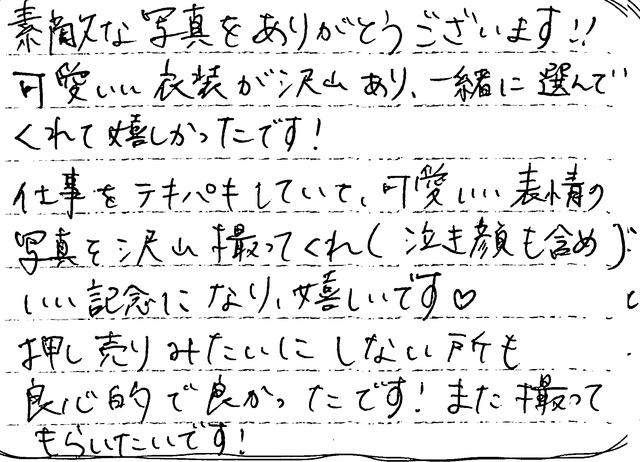 素敵な写真をありがとうございます!!
可愛いい衣装が沢山あり、一緒に選んで
くれて嬉しかったです!
仕事をテキパキしていて、可愛いい表情の
写真を沢山撮ってくれ(泣き顔も含め)
いい記念になり、嬉しいです♡
押し売りみたいにしない所も
良心的で良かったです!また撮って
もらいたいです!